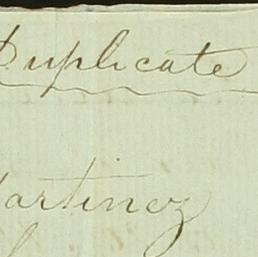 Duplicate
Martinez